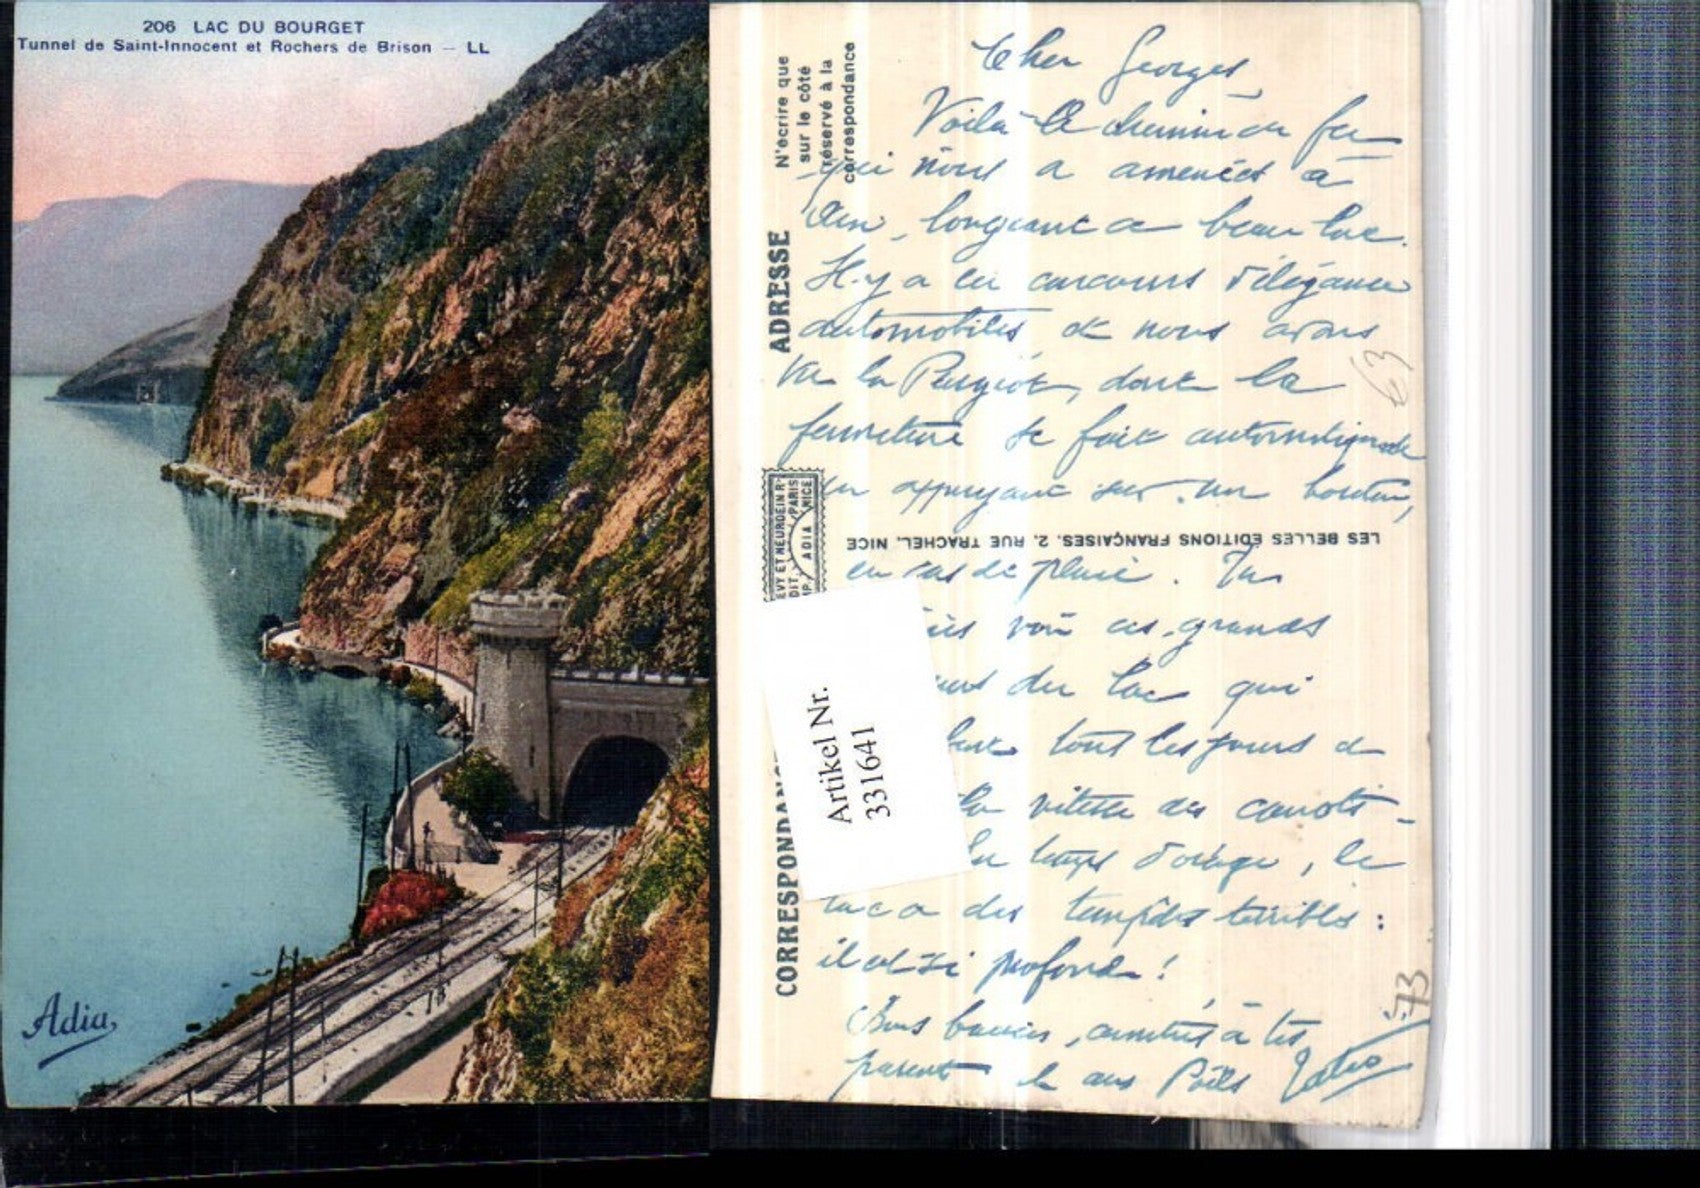 206 LAC DU BOURGET
Tunnel de Saint-Innocent et Rochers de Brison — LL
Adia
N'écrire que
sur le côté
réservé à la
correspondance
ADRESSE
CORRESPONDANC
LEVY ET NEURDEIN R
PARIS
ADIA
NICE
LES BELLES ÉDITIONS FRANÇAISES. 2, RUE TRACHEL, NICE
Artikel Nr.
331641
63
73
Cher Georges
Voilà le chemin de fer
qui nous a amenés à
Aix, longeant ce beau lac.
Il y a eu concours d'élégance
automobiles et nous avons
vu la Peugeot, dont la
fermeture se fait automatiquement
en appuyant sur un bouton,
en cas de pluie. Tu
voir ces grands
du lac qui
tous les jours de
la vitesse des canots-
temps d'orage, le
lac a des tempêtes terribles:
il est si profond!
Bons baisers, amitiés à tes
parents